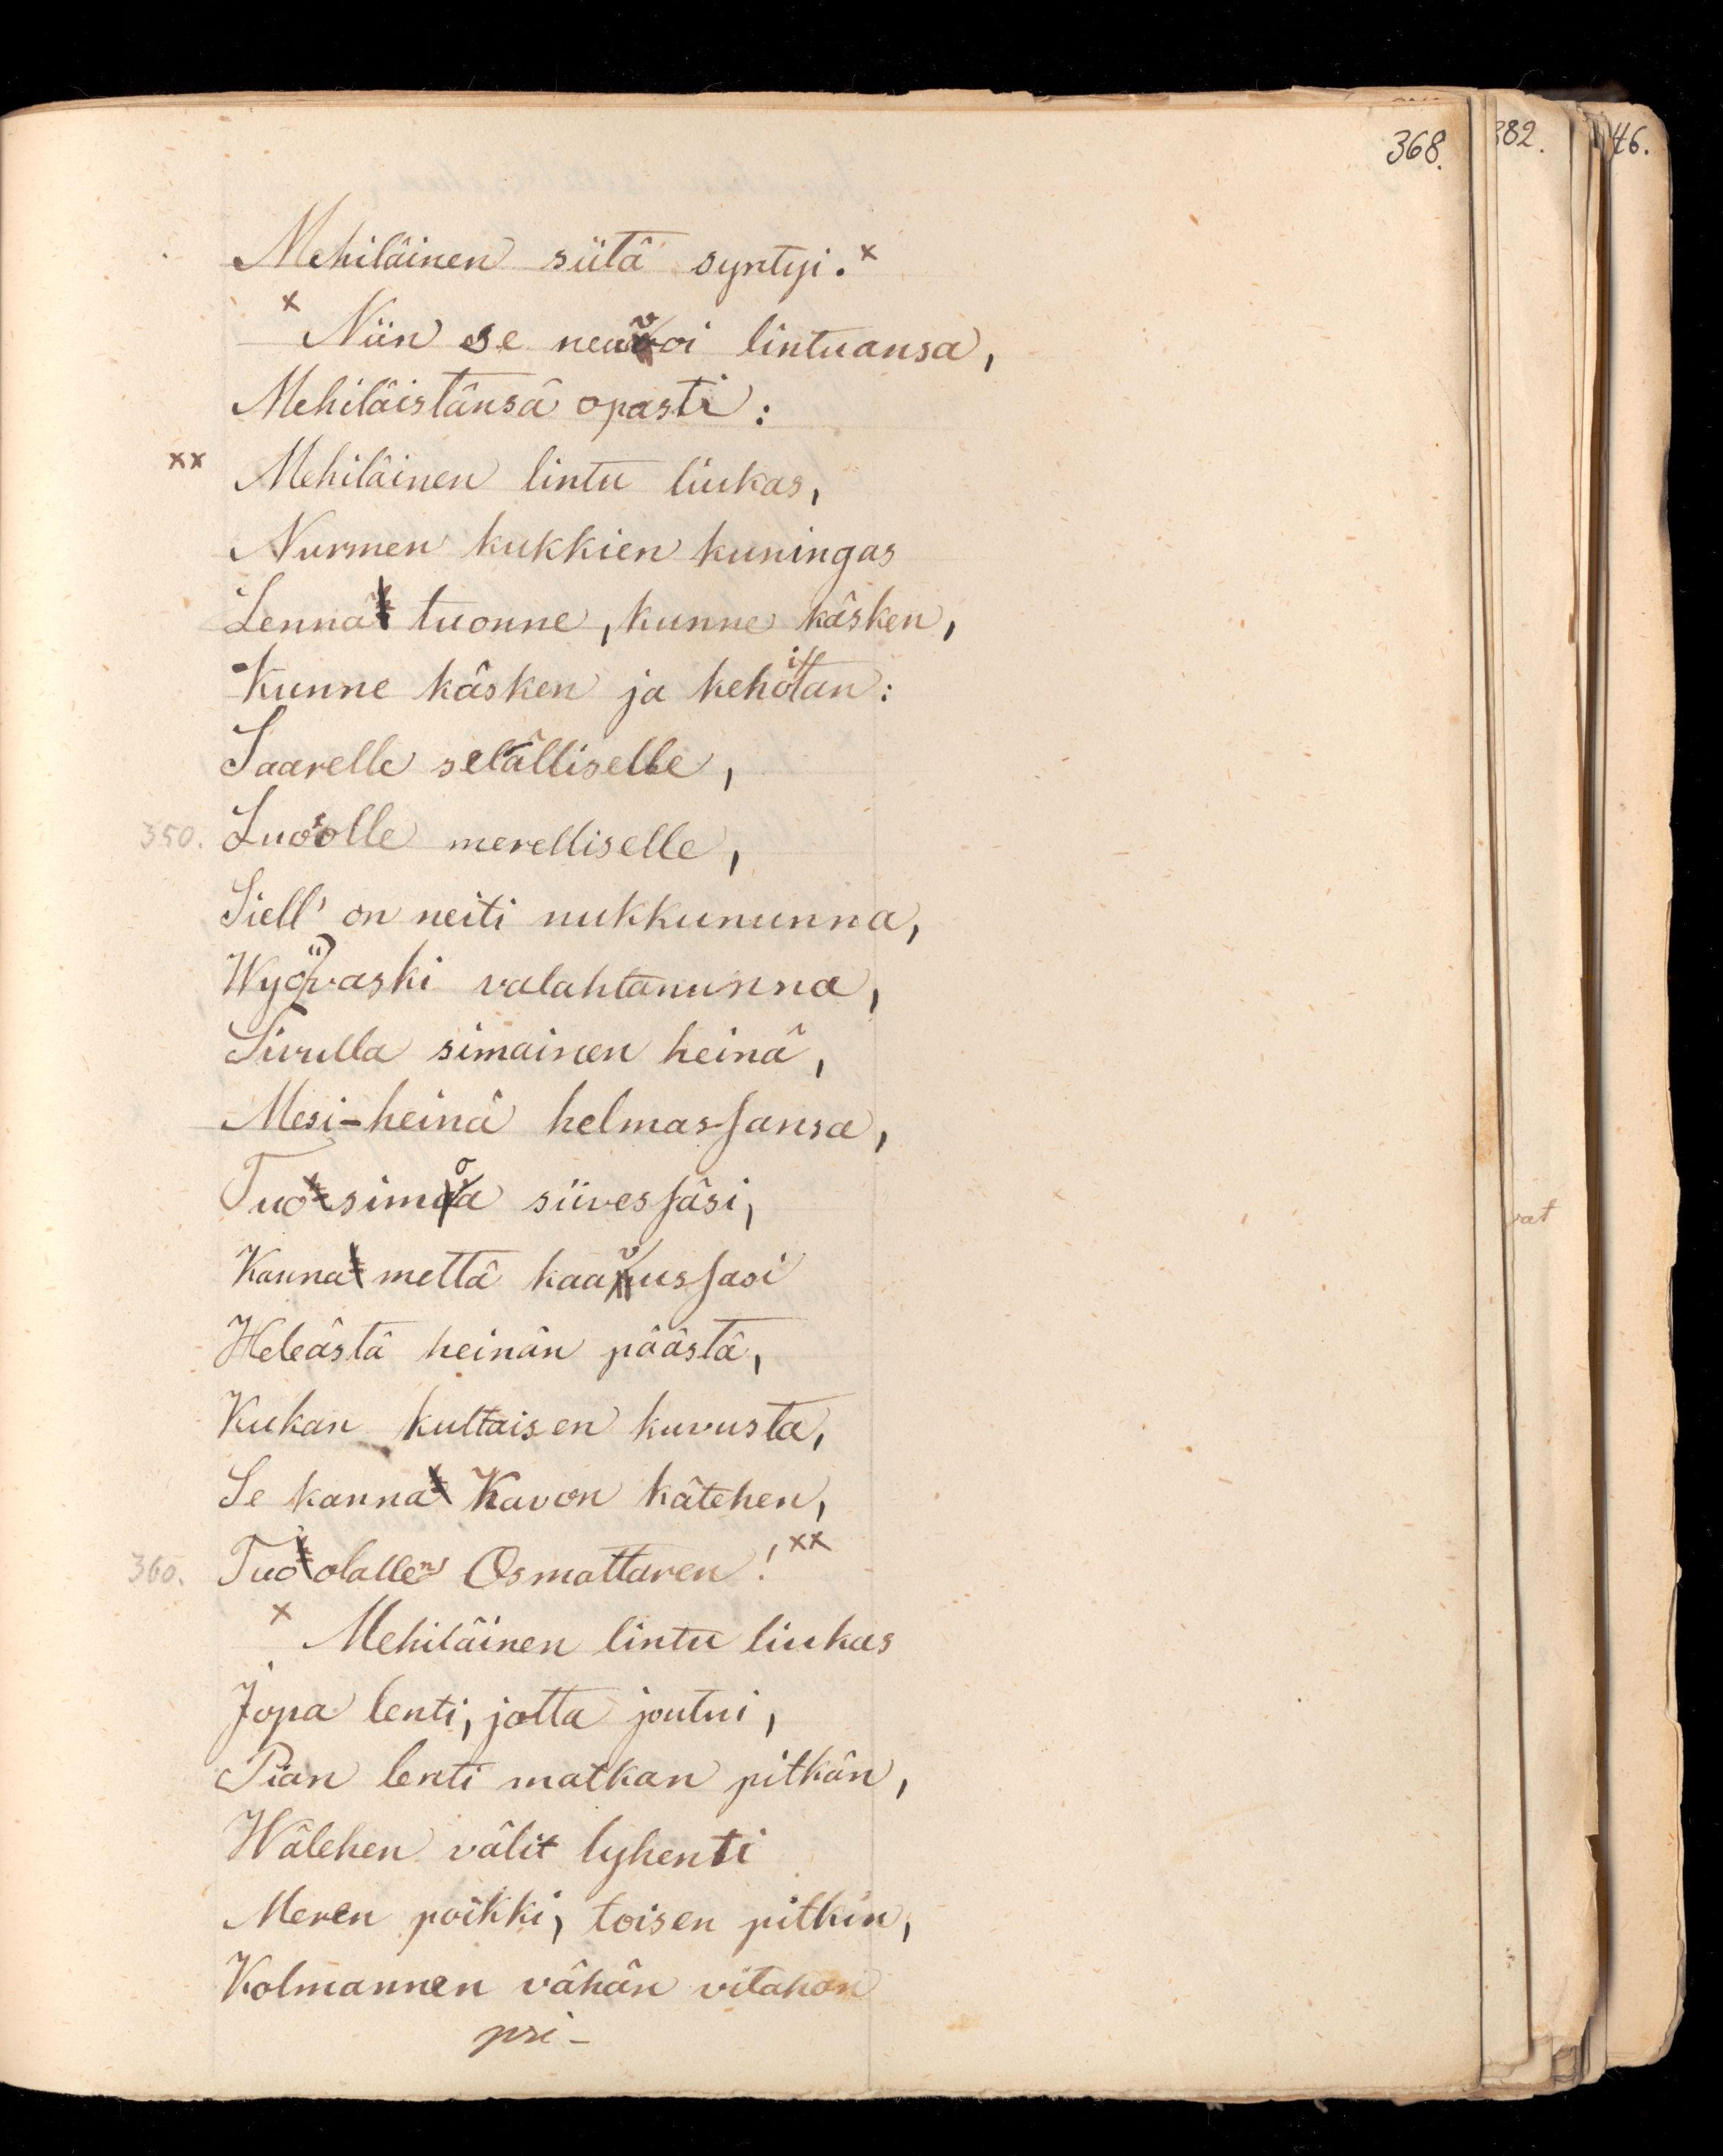 368.
382.
46.
Mehiläinen siitä syntyi. x
x Niin se neuvoi lintuansa,
Mehiläistänsä opasti:
xx Mehiläinen lintu liukas,
Nurmen kukkien kuningas
Lennä tuonne, kunne käsken,
Kunne käsken ja kehoitan:
Saarelle selälliselle,
350. Luo'olle merelliselle,
Siell' on neiti nukkununna,
Wyövaski valahtanunna,
Sivulla simainen heinä,
Mesi-heinä helmassansa,
Tuo simoa siivessäsi,
Kanna mettä kaavussasi
Heleästä heinän päästä,
Kukan kultaisen kuvusta,
Se kanna Kavon kätehen,
360. Tuo olallen Osmattaren! xx
x Mehiläinen lintu liukas
Jopa lenti, jotta joutui,
Pian lenti matkan pitkän,
Wälehen välit lyhenti
Meren poikki, toisen pitkin,
Kolmannen vähän vitahan
poi-
vat